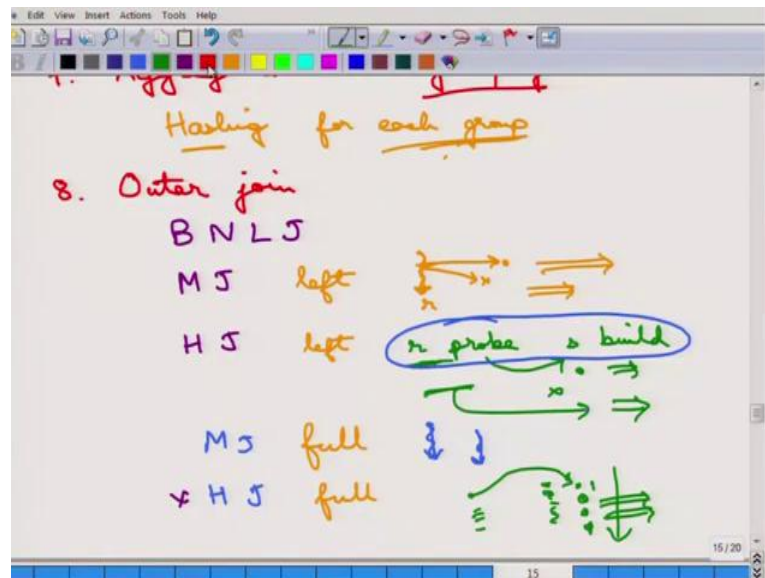 Edit View Insert Actions Tools Help
Hashing for each group
8. Outer join
B N L J
M J left r
H J left r probe s build
M J full
x H J full
15/20
15